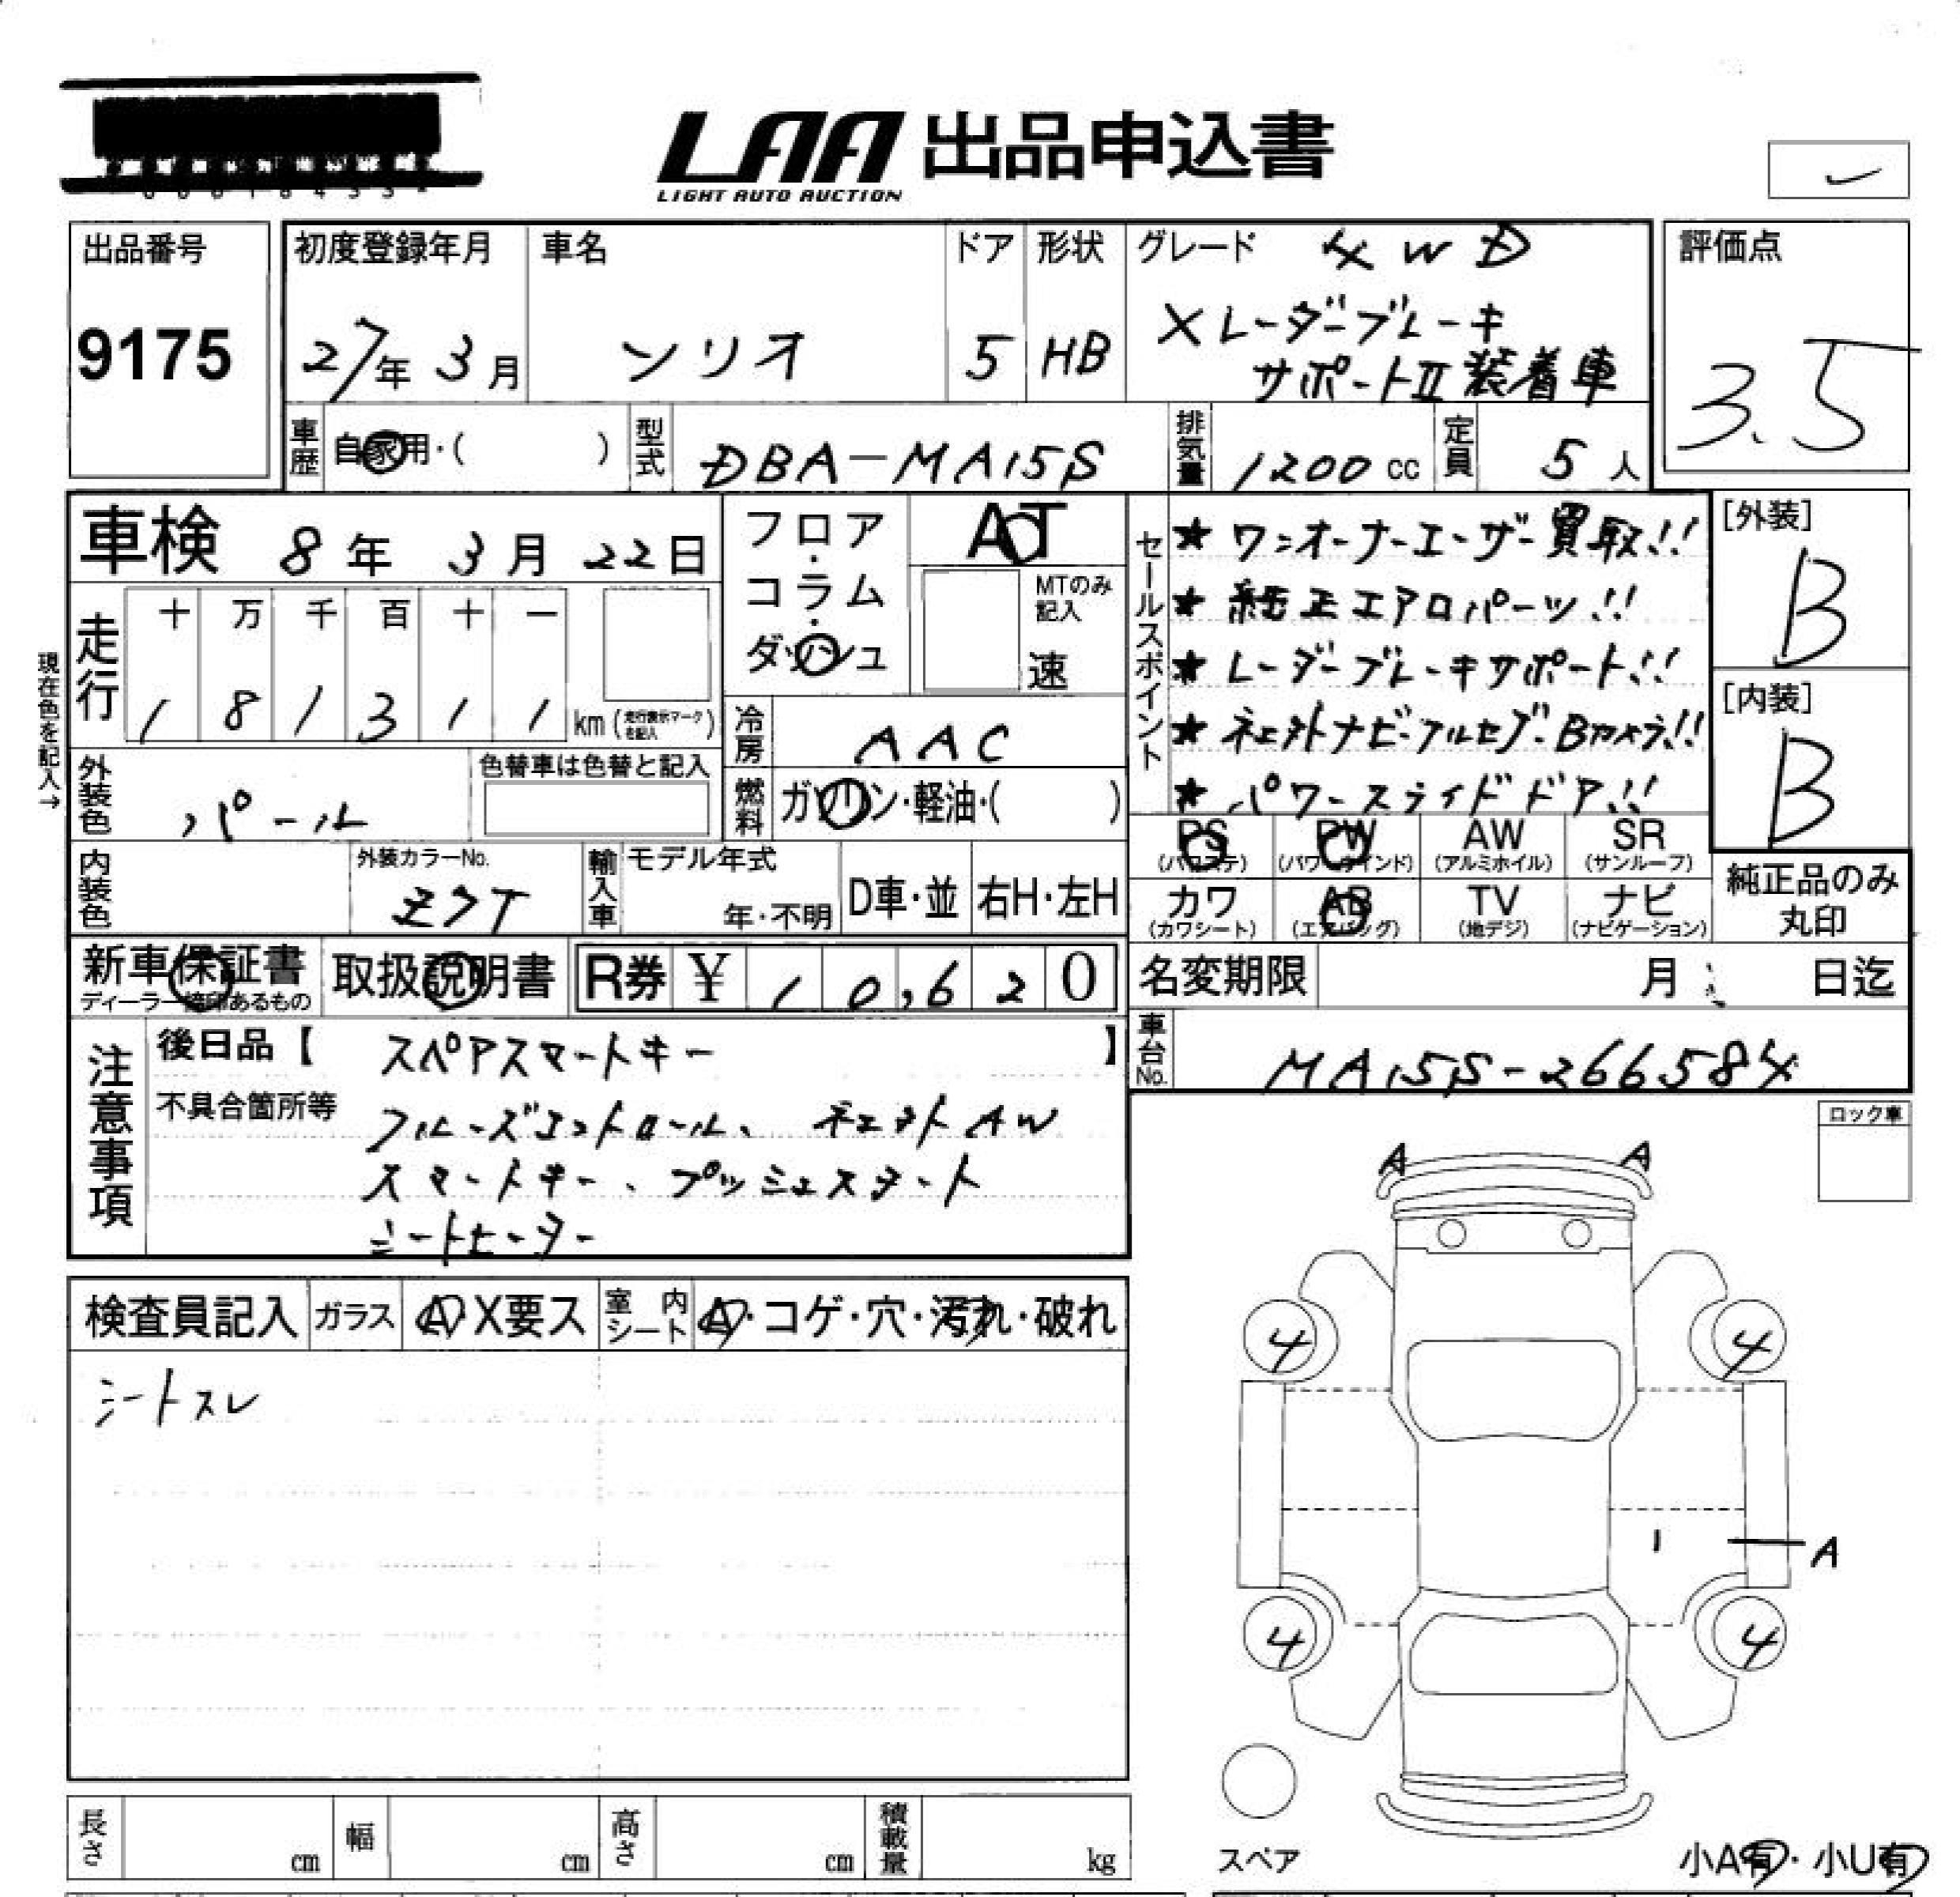 LAA 出品申込書
LIGHT AUTO AUCTION
出品番号
9175
初度登録年月
27年 3月
車名
ソリオ
ドア
5
形状
HB
グレード 4WD
Xレーダーブレーキ
サポートII装着車
評価点
3.5
車歴
自家用・( )
型式
DBA-MA15S
排気量
1200 cc
定員
5 人
車検 8年 3月 22日
フロア・コラム・ダッシュ
AT
MTのみ記入
速
走行
十 万 千 百 十 一
1 8 1 3 1 1 km (走行表示マークを記入)
現在色を記入→
冷房
AAC
外装色
パール
色替車は色替と記入
燃料
ガソリン・軽油・( )
内装色
外装カラーNo.
Z7T
輸入車
モデル年式
年・不明
D車・並
右H・左H
セールスポイント
★ワンオーナーユーザー買取!!
★純正エアロパーツ!!
★レーダーブレーキサポート!!
★社外ナビ・フルセグ・Bカメラ!!
★パワースライドドア!!
[外装]
B
[内装]
B
PS (パワステ)
PW (パワーウインド)
AW (アルミホイル)
SR (サンルーフ)
カワ (カワシート)
AB (エアバッグ)
TV (地デジ)
ナビ (ナビゲーション)
純正品のみ丸印
新車保証書
ディーラー捺印あるもの
取扱説明書
R券 ¥ 10,620
名変期限 月 日迄
車台No.
MA15S-266584
注意事項
後日品【 スペアスマートキー 】
不具合箇所等
クルーズコントロール、社外AW
スマートキー、プッシュスタート
シートヒーター
ロック車
検査員記入
ガラス
A・X要ス
室内シート
A・コゲ・穴・汚れ・破れ
シートスレ
A A
4 4
1 A
4 4
スペア
小A有・小U有
長さ cm
幅 cm
高さ cm
積載量 kg